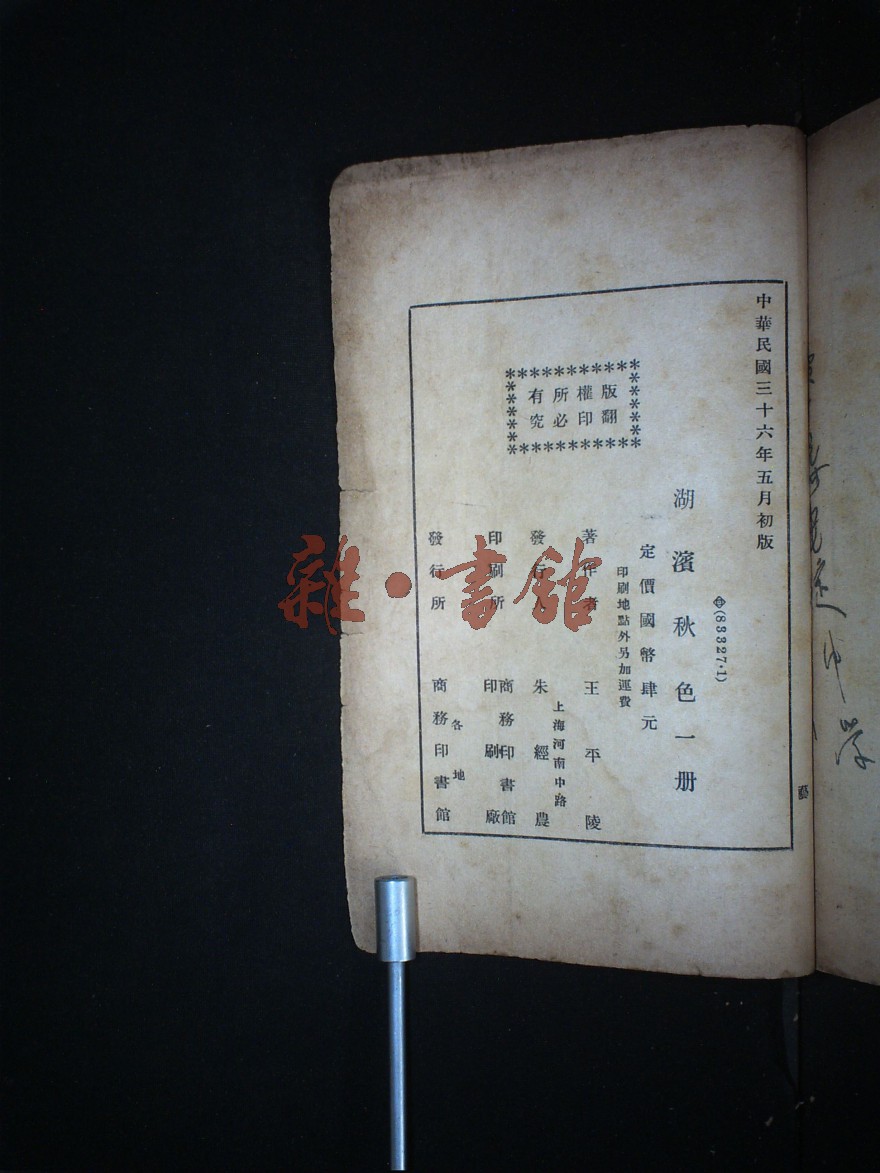 中華民國三十六年五月初版
(83327·1)
湖濱秋色一册
定價國幣肆元
印刷地點外另加運費
版權所有
翻印必究
著作者 王平陵
上海河南中路
發行人 朱經農
印刷所 商務印書館印刷廠
各地
發行所 商務印書館
雜·書館